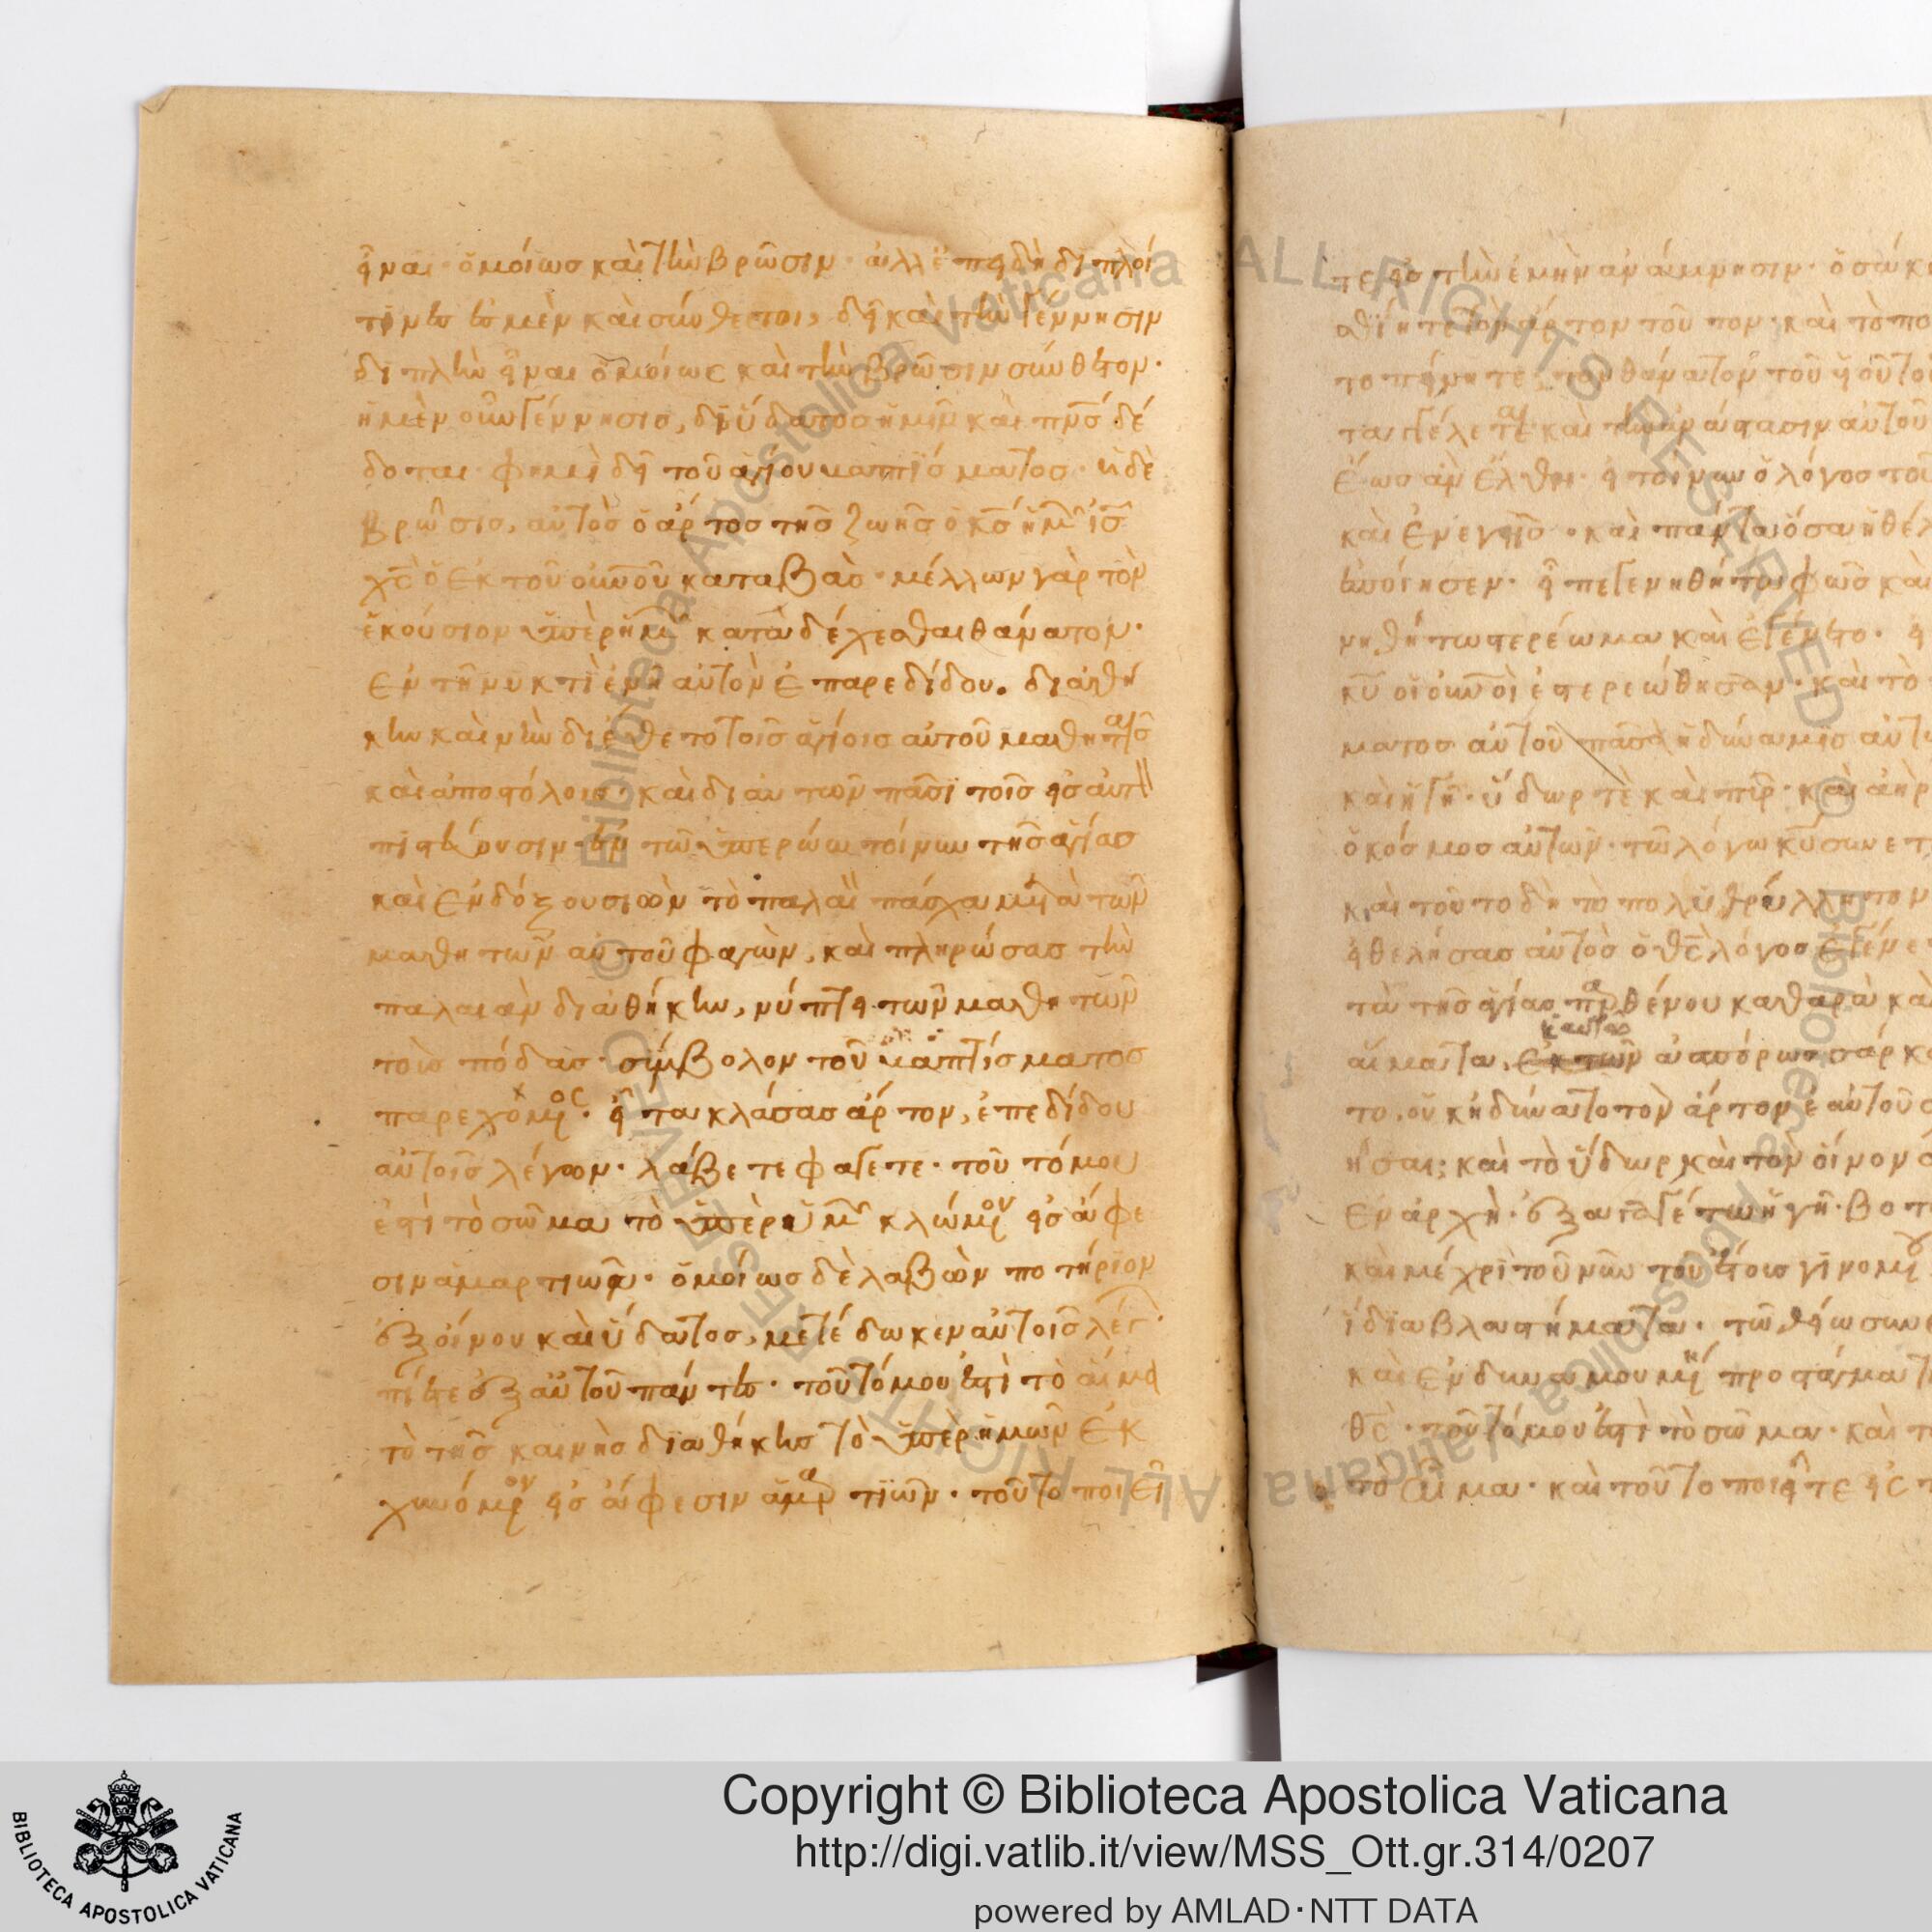 εἶναι· ὁμοίως καὶ τὴν βρῶσιν· ἀλλ' ἐπειδὴ διπλοῖ
τινές ἐσμεν καὶ σύνθετοι, δεῖ καὶ τὴν γέννησιν
διπλὴν εἶναι ὁμοίως καὶ τὴν βρῶσιν σύνθετον·
ἡ μὲν οὖν γέννησις, δι' ὕδατος ἡμῖν καὶ πνς δέ
δοται· φημὶ δὴ τοῦ ἁγίου βαπτίσματος· ἡ δὲ
βρῶσις, αὐτὸς ὁ ἄρτος τῆς ζωῆς ὁ κς ἡμῶν ις
χς ὁ ἐκ τοῦ οὐνοῦ καταβάς· μέλλων γὰρ τὸν
ἑκούσιον ὑπὲρ ἡμῶν καταδέχεσθαι θάνατον·
ἐν τῇ νυκτὶ ἐν ᾗ αὐτὸν ἐπαρεδίδου. διαθή
κην καινὴν διέθετο τοῖς ἁγίοις αὐτοῦ μαθηταῖς
καὶ ἀποστόλοις· καὶ δι' αὐτῶν πᾶσι τοῖς εἰς αὐτ
πιστεύουσιν· ἐν τῷ ὑπερώω τοίνυν τῆς ἁγίας
καὶ ἐνδόξου σιὼν τὸ παλαι πάσχα μετὰ τῶν
μαθητῶν αὐτοῦ φαγὼν, καὶ πληρώσας τὴν
παλαιὰν διαθήκην, νίπτει τῶν μαθητῶν
τοὺς πόδας· σύμβολον τοῦ βαπτίσματος
παρεχόμενος· εἶτα κλάσας ἄρτον, ἐπεδίδου
αὐτοῖς λέγων· λάβετε φάγετε· τοῦτό μου
ἐστὶ τὸ σῶμα τὸ ὑπὲρ ἡμῶν κλώμενον εἰς ἄφε
σιν ἁμαρτιῶν· ὁμοίως δὲ λαβὼν ποτήριον
ἐξ οἴνου καὶ ὕδατος, μετέδωκεν αὐτοῖς λέγ·
πίετε ἐξ αὐτοῦ πάντες· τοῦτό μου ἐστὶ τὸ αἷμα
τὸ τῆς καινῆς διαθήκης τὸ ὑπὲρ ἡμῶν ἐκ
χυνόμενον εἰς ἄφεσιν ἁμαρτιῶν· τοῦτο ποιεῖ
τε εἰς τὴν ἐμὴν ἀνάμνησιν· ὁσάκ
σθίητε τὸν ἄρτον τοῦτον· καὶ τὸ πο
το πίνητε, τὸν θάνατον τοῦ υἱοῦ τοῦ
καταγγέλετε· καὶ τὴν ἀνάστασιν αὐτοῦ
ἕως ἂν ἔλθῃ· εἰ τοίνυν ὁ λόγος τοῦ
καὶ ἐνεργὴς· καὶ πάντα ὅσα ἠθέλ
ἐποίησεν· εἶπε γενηθήτω φῶς καὶ
νηθήτω στερέωμα καὶ ἐγένετο·
κυ οἱ οὐνοὶ ἐστερεώθησαν· καὶ τὸ
ματος αὐτοῦ πᾶσα ἡ δύναμις αὐτ
καὶ ἡ γῆ· ὕδωρ τὲ καὶ πῦρ· καὶ ἀὴρ
ὁ κόσμος αὐτῶν· τῷ λόγω κυ συνετ
καὶ τοῦτο δὴ τὸ πολυθρύλλητον
εἰ θελήσας αὐτὸς ὁ θς λόγος ἐγένε
τὰ τῆς ἁγίας παρθένου καθαρὰ κα
αἵματα, ἐκ τῶν ἀσπόρως σάρκα
το. οὐκ ἠδύνατο τὸν ἄρτον ἑαυτοῦ σ
ῆσαι; καὶ τὸ ὕδωρ καὶ τὸν οἶνον
ἐν ἀρχῇ· ἐξαγαγέτω ἡ γῆ· βοτ
καὶ μέχρι τοῦ νῦν τοῦ ὑετοῦ γινομένου
ἴδια βλαστήματα· τῷ θείω συν
καὶ ἐνδυναμουμένη προστάγματι
θς· τοῦτό μου ἐστὶ τὸ σῶμα· καὶ τ
τὸ αἷμα· καὶ τοῦτο ποιεῖτε εἰς τ
Copyright © Biblioteca Apostolica Vaticana
http://digi.vatlib.it/view/MSS_Ott.gr.314/0207
powered by AMLAD·NTT DATA
BIBLIOTECA APOSTOLICA VATICANA